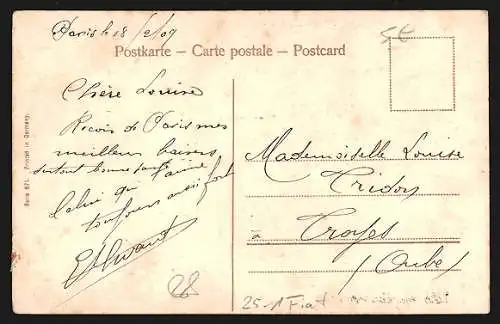 Paris le 18/2/09
5€
Postkarte – Carte postale – Postcard
Chère Louise
Recois de Paris mes
meilleurs baisers
surtout bonne santé
Celui qui t'aime
toujours aussi fort
Mademoiselle Louise
Tridon
à Troyes
(Aube)
28
25-1 Fiat
Serie 671. Printed in Germany.